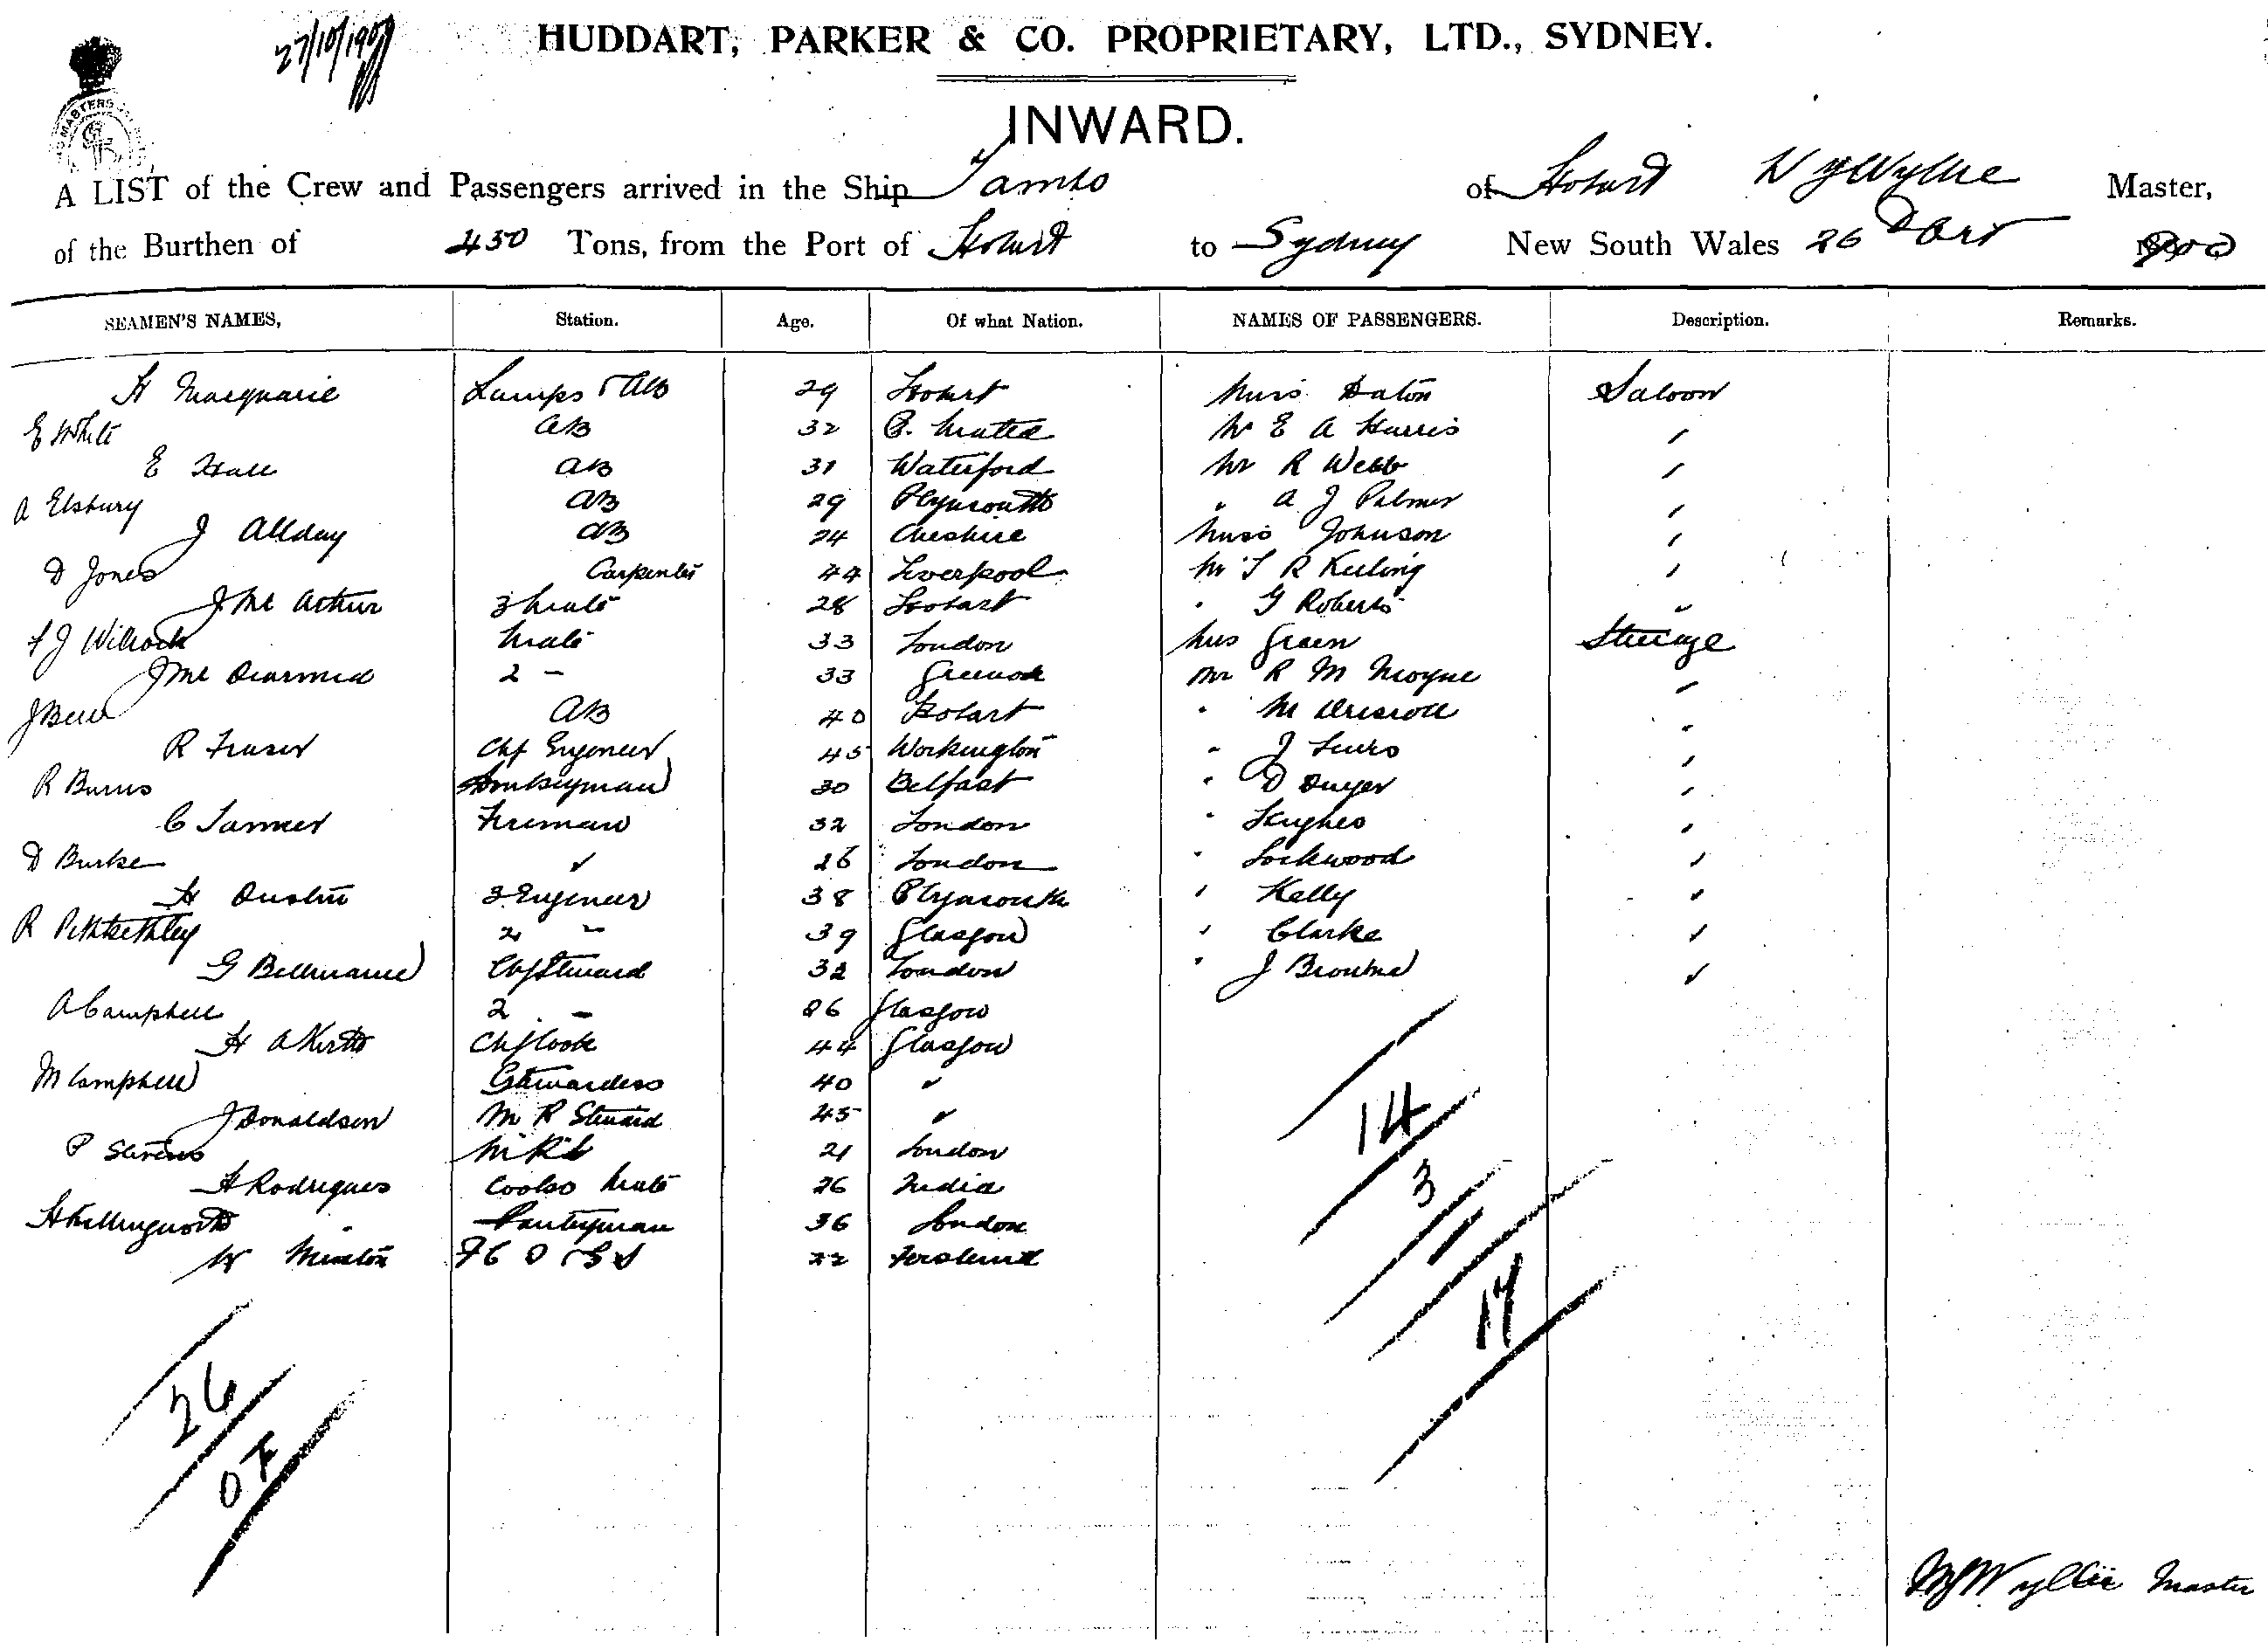 27/10/1900
HUDDART, PARKER & CO. PROPRIETARY, LTD., SYDNEY.
MASTERS
INWARD.
A LIST of the Crew and Passengers arrived in the Ship Tambo of Hobart W J Wyllie Master,
of the Burthen of 450 Tons, from the Port of Hobart to Sydney New South Wales 26 Oct 1900
SEAMEN'S NAMES, Station. Age. Of what Nation. NAMES OF PASSENGERS. Description. Remarks.
H Macquarie Lamps & AB 29 Hobart Miss Eaton Saloon
E White AB 32 Mr E A Harris "
E Hall AB 31 Waterford Mr R Webb "
A Elsbury AB 29 Plymouth " A J Palmer "
J Allday AB 24 Cheshire Miss Johnson "
D Jones Carpenter 44 Liverpool Mr T R Keeling "
J Mc Arthur 3 Mate 28 Hobart " G Roberts "
F J Willcock Mate 33 London Mrs Green Steerage
J Mc Dearmid 2 " 33 Greenock Mr R M Moyne "
J Bell AB 40 Hobart " M Driscoll "
R Fraser Chf Engineer 45 Workington " J "
R Burns Donkeyman 30 Belfast " D Dwyer "
C Tanner Fireman 32 London " Hughes "
D Burke " 26 London " Lockwood "
H Austin 3 Engineer 38 Plymouth " Kelly "
R Pitkeithley 2 " 39 Glasgow " Clarke "
G Bellmaine Chf Steward 32 London " J Browne "
A Campbell 2 " 26 Glasgow
H A Kirth Chf Cook 44 Glasgow
M Campbell Stewardess 40 "
J Donaldson M R Steward 45 "
P Stevens 21 London
H Rodrigues Cooks Mate 26 India
H Killingworth Pantryman 36 London
W 22
14
3
17
26
0 F
W J Wyllie Master